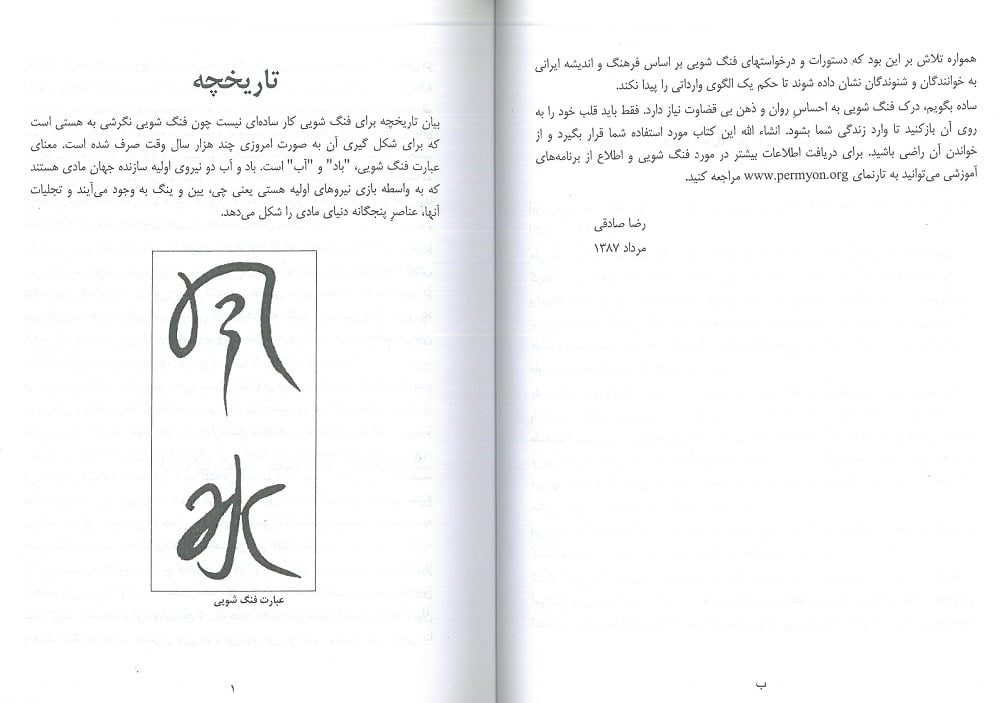 همواره تلاش بر این بود که دستورات و درخواستهای فنگ شویی بر اساس فرهنگ و اندیشه ایرانی
به خوانندگان و شنوندگان نشان داده شوند تا حکم یک الگوی وارداتی را پیدا نکند.
ساده بگویم، درک فنگ شویی به احساسِ روان و ذهن بی قضاوت نیاز دارد. فقط باید قلب خود را به
روی آن بازکنید تا وارد زندگی شما بشود. انشاء الله این کتاب مورد استفاده شما قرار بگیرد و از
خواندن آن راضی باشید. برای دریافت اطلاعات بیشتر در مورد فنگ شویی و اطلاع از برنامه‌های
آموزشی می‌توانید به تارنمای www.permyon.org مراجعه کنید.
رضا صادقی
مرداد ۱۳۸۷
ب
تاریخچه
بیان تاریخچه برای فنگ شویی کار ساده‌ای نیست چون فنگ شویی نگرشی به هستی است
که برای شکل گیری آن به صورت امروزی چند هزار سال وقت صرف شده است. معنای
عبارت فنگ شویی، "باد" و "آب" است. باد و آب دو نیروی اولیه سازنده جهان مادی هستند
که به واسطه بازی نیروهای اولیه هستی یعنی چی، یین و ینگ به وجود می‌آیند و تجلیات
آنها، عناصرِ پنجگانه دنیای مادی را شکل می‌دهد.
风
水
عبارت فنگ شویی
۱